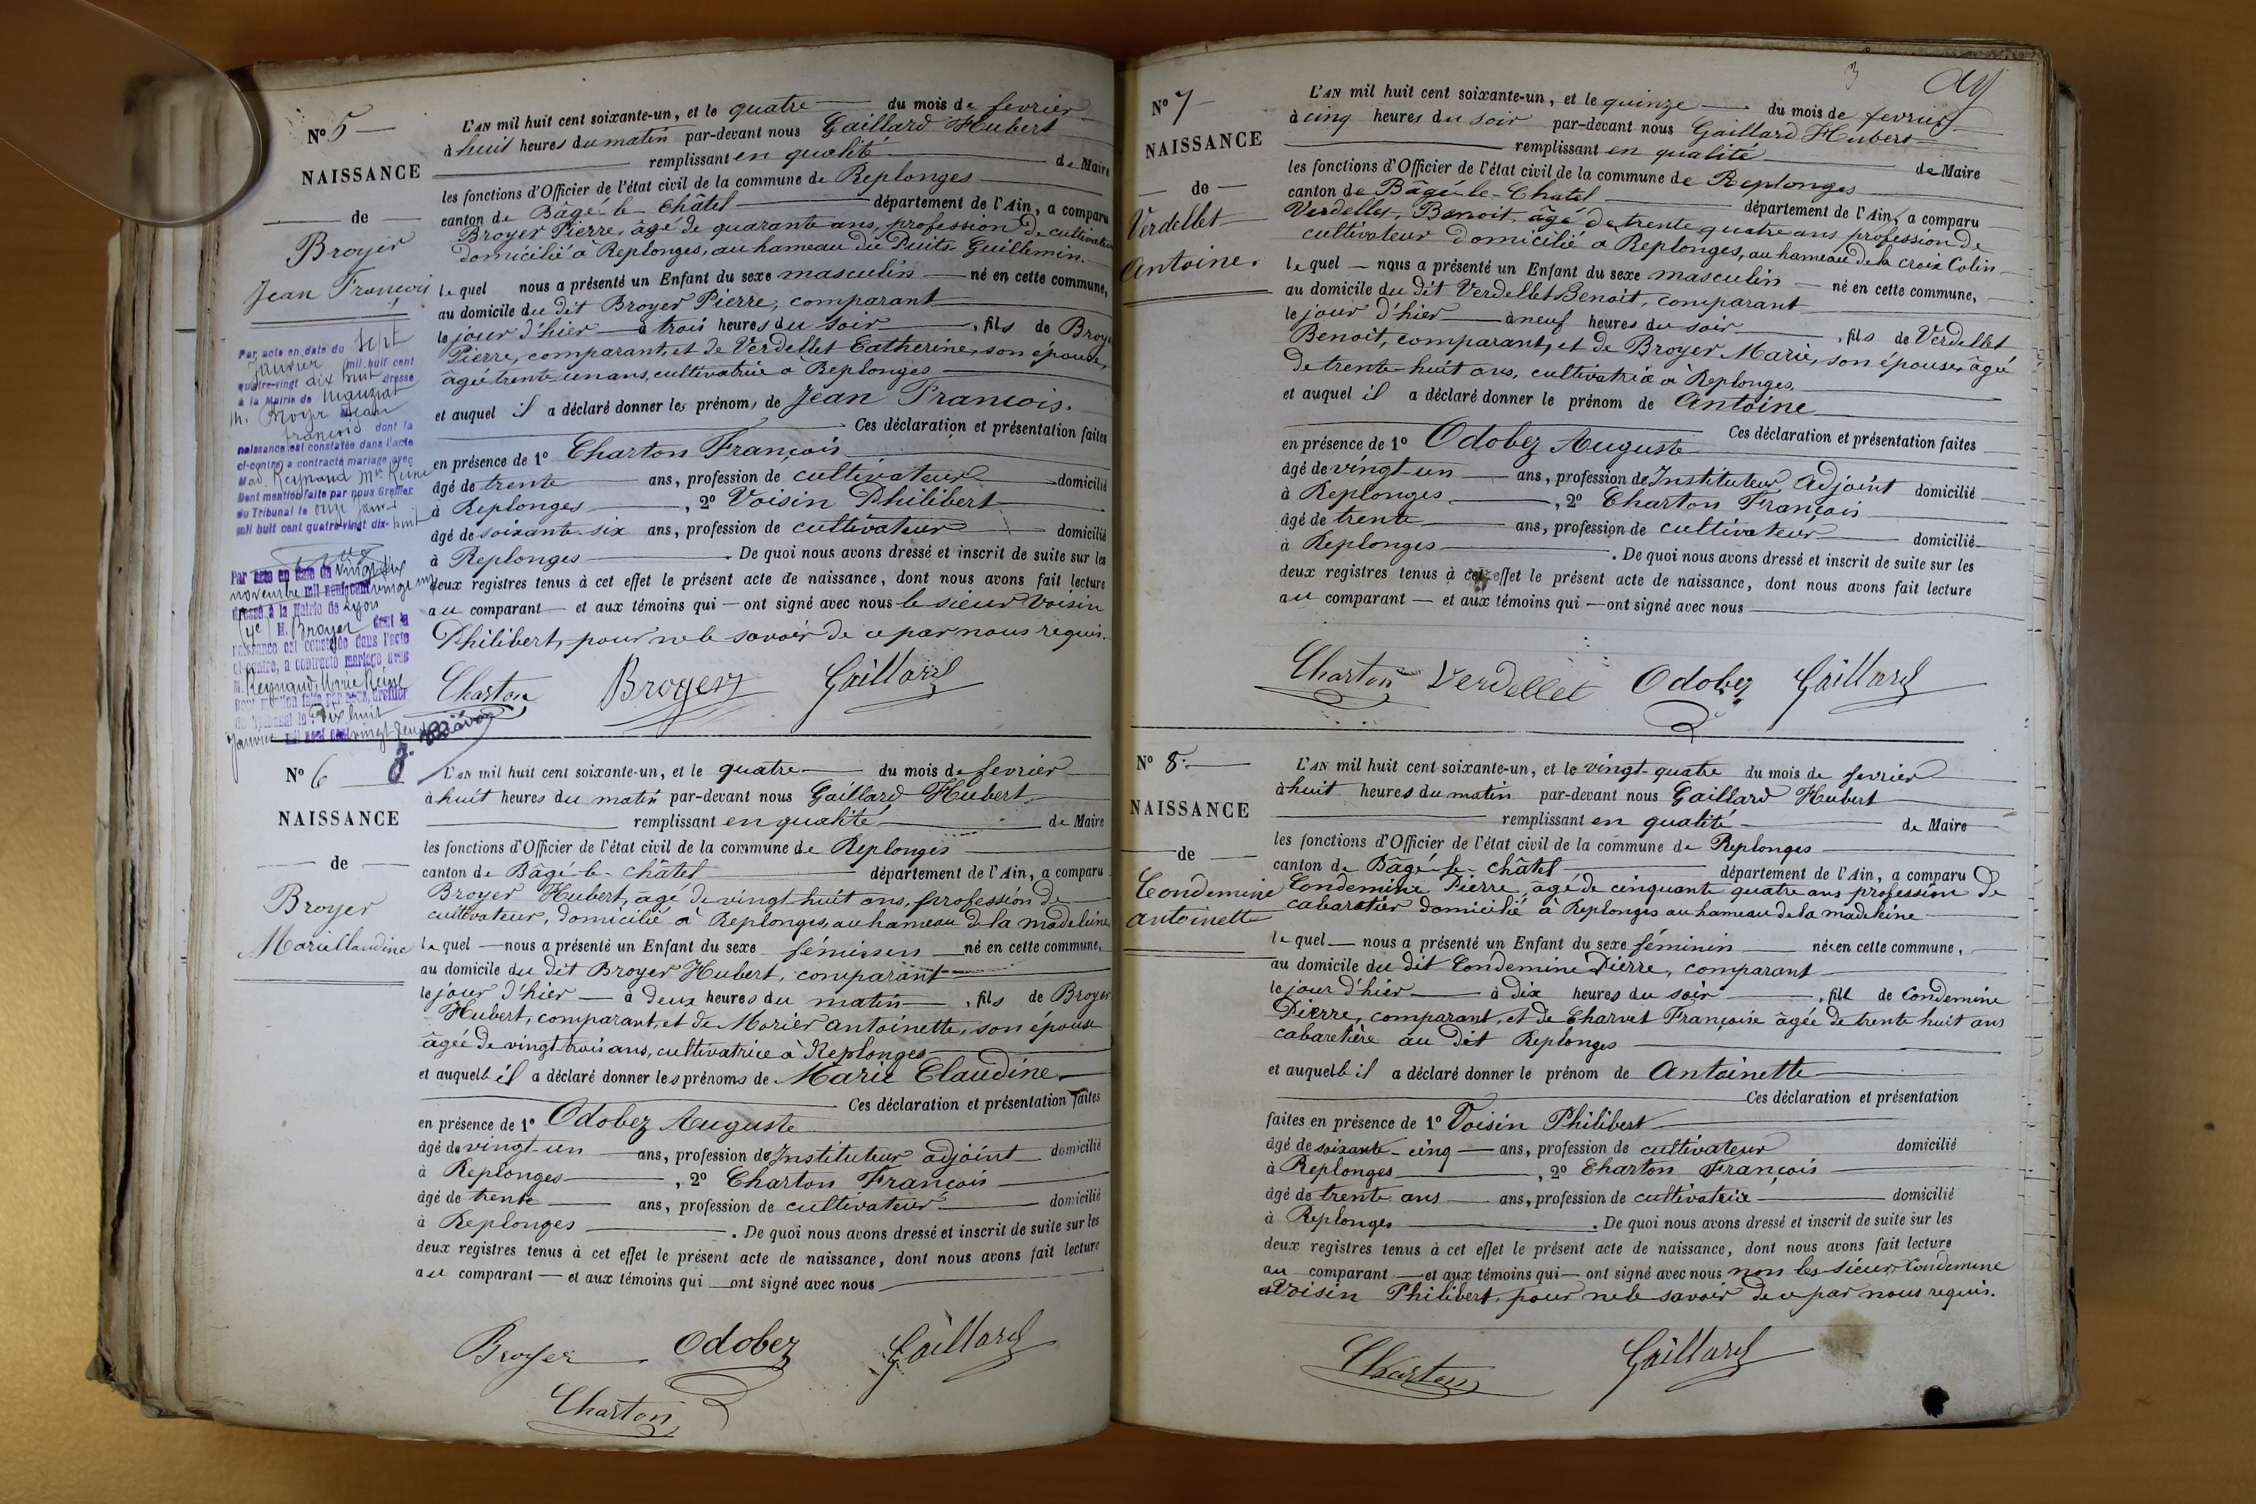 No 5
NAISSANCE
de
Broyer
Jean François
L'AN mil huit cent soixante-un, et le quatre du mois de fevrier
à huit heures du matin par-devant nous Gaillard Hubert
remplissant en qualité de Maire
les fonctions d'Officier de l'état civil de la commune de Replonges
canton de Bâgé-le-Châtel département de l'Ain, a comparu
Broyer Pierre, âgé de quarante ans, profession de cultivateur
domicilié à Replonges, au hameau du Puits Guillemin.
lequel nous a présenté un Enfant du sexe masculin né en cette commune,
au domicile du dit Broyer Pierre, comparant
le jour d'hier à trois heures du soir, fils de Broyer
Pierre, comparant, et de Verdellet Catherine, son épouse,
âgée trente-un ans, cultivatrice à Replonges
et auquel il a déclaré donner les prénoms de Jean Francois.
Ces déclaration et présentation faites
en présence de 1º Charton François
âgé de trente ans, profession de cultivateur domicilié
à Replonges, 2º Voisin Philibert
âgé de soixante-six ans, profession de cultivateur domicilié
à Replonges. De quoi nous avons dressé et inscrit de suite sur les
deux registres tenus à cet effet le présent acte de naissance, dont nous avons fait lecture
au comparant et aux témoins qui ont signé avec nous le sieur Voisin
Philibert, pour ne le savoir de ce par nous requis.
Charton Broyer Gaillard
Par acte en date du sept
Janvier mil huit cent
quatre-vingt dix huit dressé
à la Mairie de Manziat
M. Broyer Jean
François dont la
naissance est constatée dans l'acte
ci-contre a contracté mariage avec
Mad. Reynaud Mie Reine
Dont mention faite par nous Greffier
du Tribunal le onze Janv.
mil huit cent quatre-vingt dix-huit
Par acte en date du vingt deux
novembre mil neuf cent vingt un
dressé à la Mairie de Lyon
(4e) M. Broyer dont la
naissance est constatée dans l'acte
ci-contre, a contracté mariage avec
M. Reynaud, Marie Reine
Dont mention faite par nous, Greffier
du Tribunal le Dix huit
Janvier mil neuf cent vingt deux
No 6
NAISSANCE
de
Broyer
Marie Claudine
L'AN mil huit cent soixante-un, et le quatre du mois de fevrier
à huit heures du matin par-devant nous Gaillard Hubert
remplissant en qualité de Maire
les fonctions d'Officier de l'état civil de la commune de Replonges
canton de Bâgé-le-châtel département de l'Ain, a comparu
Broyer Hubert, âgé de vingt-huit ans, profession de
cultivateur, domicilié à Replonges, au hameau de la madeleine
lequel nous a présenté un Enfant du sexe féminin né en cette commune,
au domicile du dit Broyer Hubert, comparant
le jour d'hier à deux heures du matin, fils de Broyer
Hubert, comparant, et de Morier antoinette, son épouse
âgée de vingt-trois ans, cultivatrice à Replonges
et auquelle il a déclaré donner les prénoms de Marie Claudine
Ces déclaration et présentation faites
en présence de 1º Odobez Auguste
âgé de vingt-un ans, profession de Instituteur adjoint domicilié
à Replonges, 2º Charton François
âgé de trente ans, profession de cultivateur domicilié
à Replonges. De quoi nous avons dressé et inscrit de suite sur les
deux registres tenus à cet effet le présent acte de naissance, dont nous avons fait lecture
au comparant et aux témoins qui ont signé avec nous
Broyer Odobez Gaillard
Charton
3
No 7
NAISSANCE
de
Verdellet
Antoine.
L'AN mil huit cent soixante-un, et le quinze du mois de fevrier
à cinq heures du soir par-devant nous Gaillard Hubert
remplissant en qualité de Maire
les fonctions d'Officier de l'état civil de la commune de Replonges
canton de Bâgé-le-Chatel département de l'Ain, a comparu
Verdellet, Benoit, âgé de trente quatre ans profession de
cultivateur domicilié à Replonges, au hameau de la croix Colin
lequel nous a présenté un Enfant du sexe masculin né en cette commune,
au domicile du dit Verdellet Benoit, comparant
le jour d'hier à neuf heures du soir, fils de Verdellet
Benoit, comparant, et de Broyer Marie, son épouse, âgée
de trente-huit ans, cultivatrice à Replonges.
et auquel il a déclaré donner le prénom de Antoine
Ces déclaration et présentation faites
en présence de 1º Odobez Auguste
âgé de vingt-un ans, profession de Instituteur Adjoint domicilié
à Replonges, 2º Charton François
âgé de trente ans, profession de cultivateur domicilié
à Replonges. De quoi nous avons dressé et inscrit de suite sur les
deux registres tenus à cet effet le présent acte de naissance, dont nous avons fait lecture
au comparant et aux témoins qui ont signé avec nous
Charton Verdellet Odobez Gaillard
No 8.
NAISSANCE
de
Condemine
antoinette
L'AN mil huit cent soixante-un, et le vingt-quatre du mois de fevrier
à huit heures du matin par-devant nous Gaillard Hubert
remplissant en qualité de Maire
les fonctions d'Officier de l'état civil de la commune de Replonges
canton de Bâgé-le-châtel département de l'Ain, a comparu
Condemine Pierre, âgé de cinquante quatre ans profession de
cabaretier domicilié à Replonges au hameau de la madeleine
lequel nous a présenté un Enfant du sexe féminin née en cette commune,
au domicile du dit Condemine Pierre, comparant
le jour d'hier à dix heures du soir, fille de Condemine
Pierre, comparant, et de Charvet Françoise âgée de trente huit ans
cabaretière au dit Replonges
et auquelle il a déclaré donner le prénom de Antoinette
Ces déclaration et présentation
faites en présence de 1º Voisin Philibert
âgé de soixante-cinq ans, profession de cultivateur domicilié
à Replonges, 2º Charton François
âgé de trente ans ans, profession de cultivateur domicilié
à Replonges. De quoi nous avons dressé et inscrit de suite sur les
deux registres tenus à cet effet le présent acte de naissance, dont nous avons fait lecture
au comparant et aux témoins qui ont signé avec nous non les sieurs Condemine
et Voisin Philibert, pour ne le savoir de ce par nous requis.
Charton Gaillard